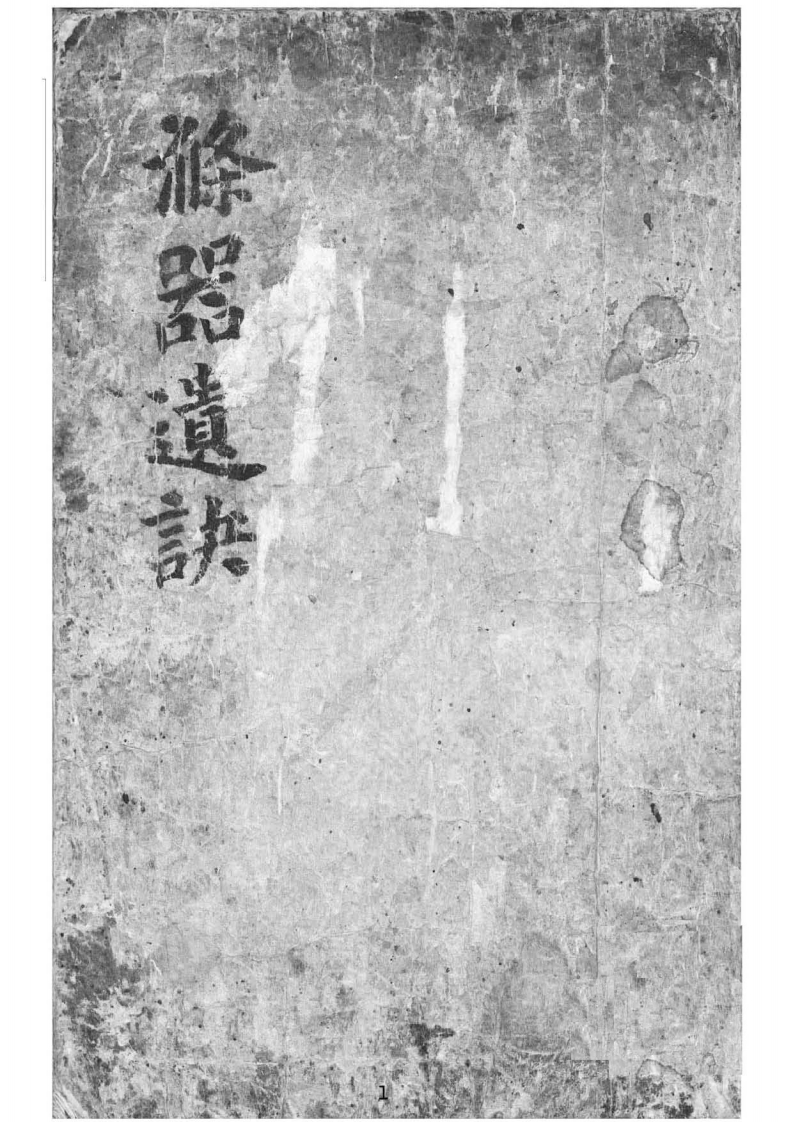 滌器遺訣
1